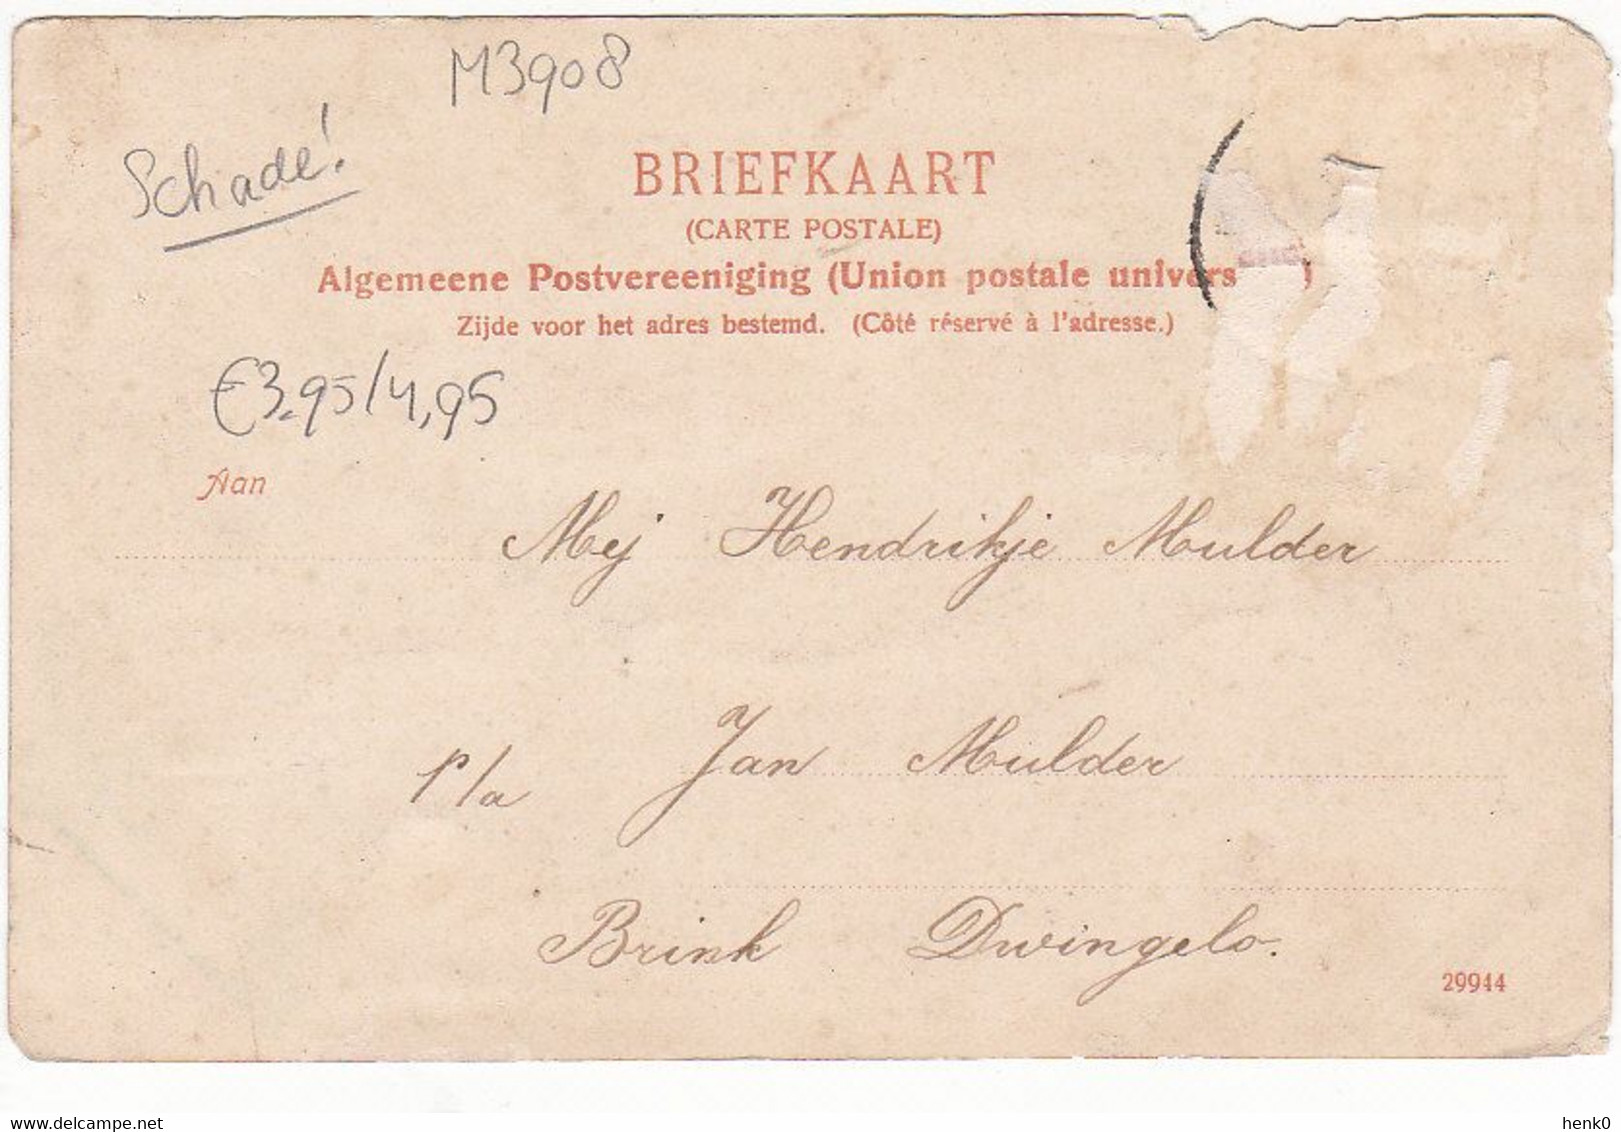 M3908
Schade!
BRIEFKAART
(CARTE POSTALE)
Algemeene Postvereeniging (Union postale univers )
Zijde voor het adres bestemd. (Côté réservé à l'adresse.)
€3,95/4,95
Aan
Mej Hendrikje Mulder
p/a Jan Mulder
Brink Dwingelo.
29944
www.delcampe.net
henk0